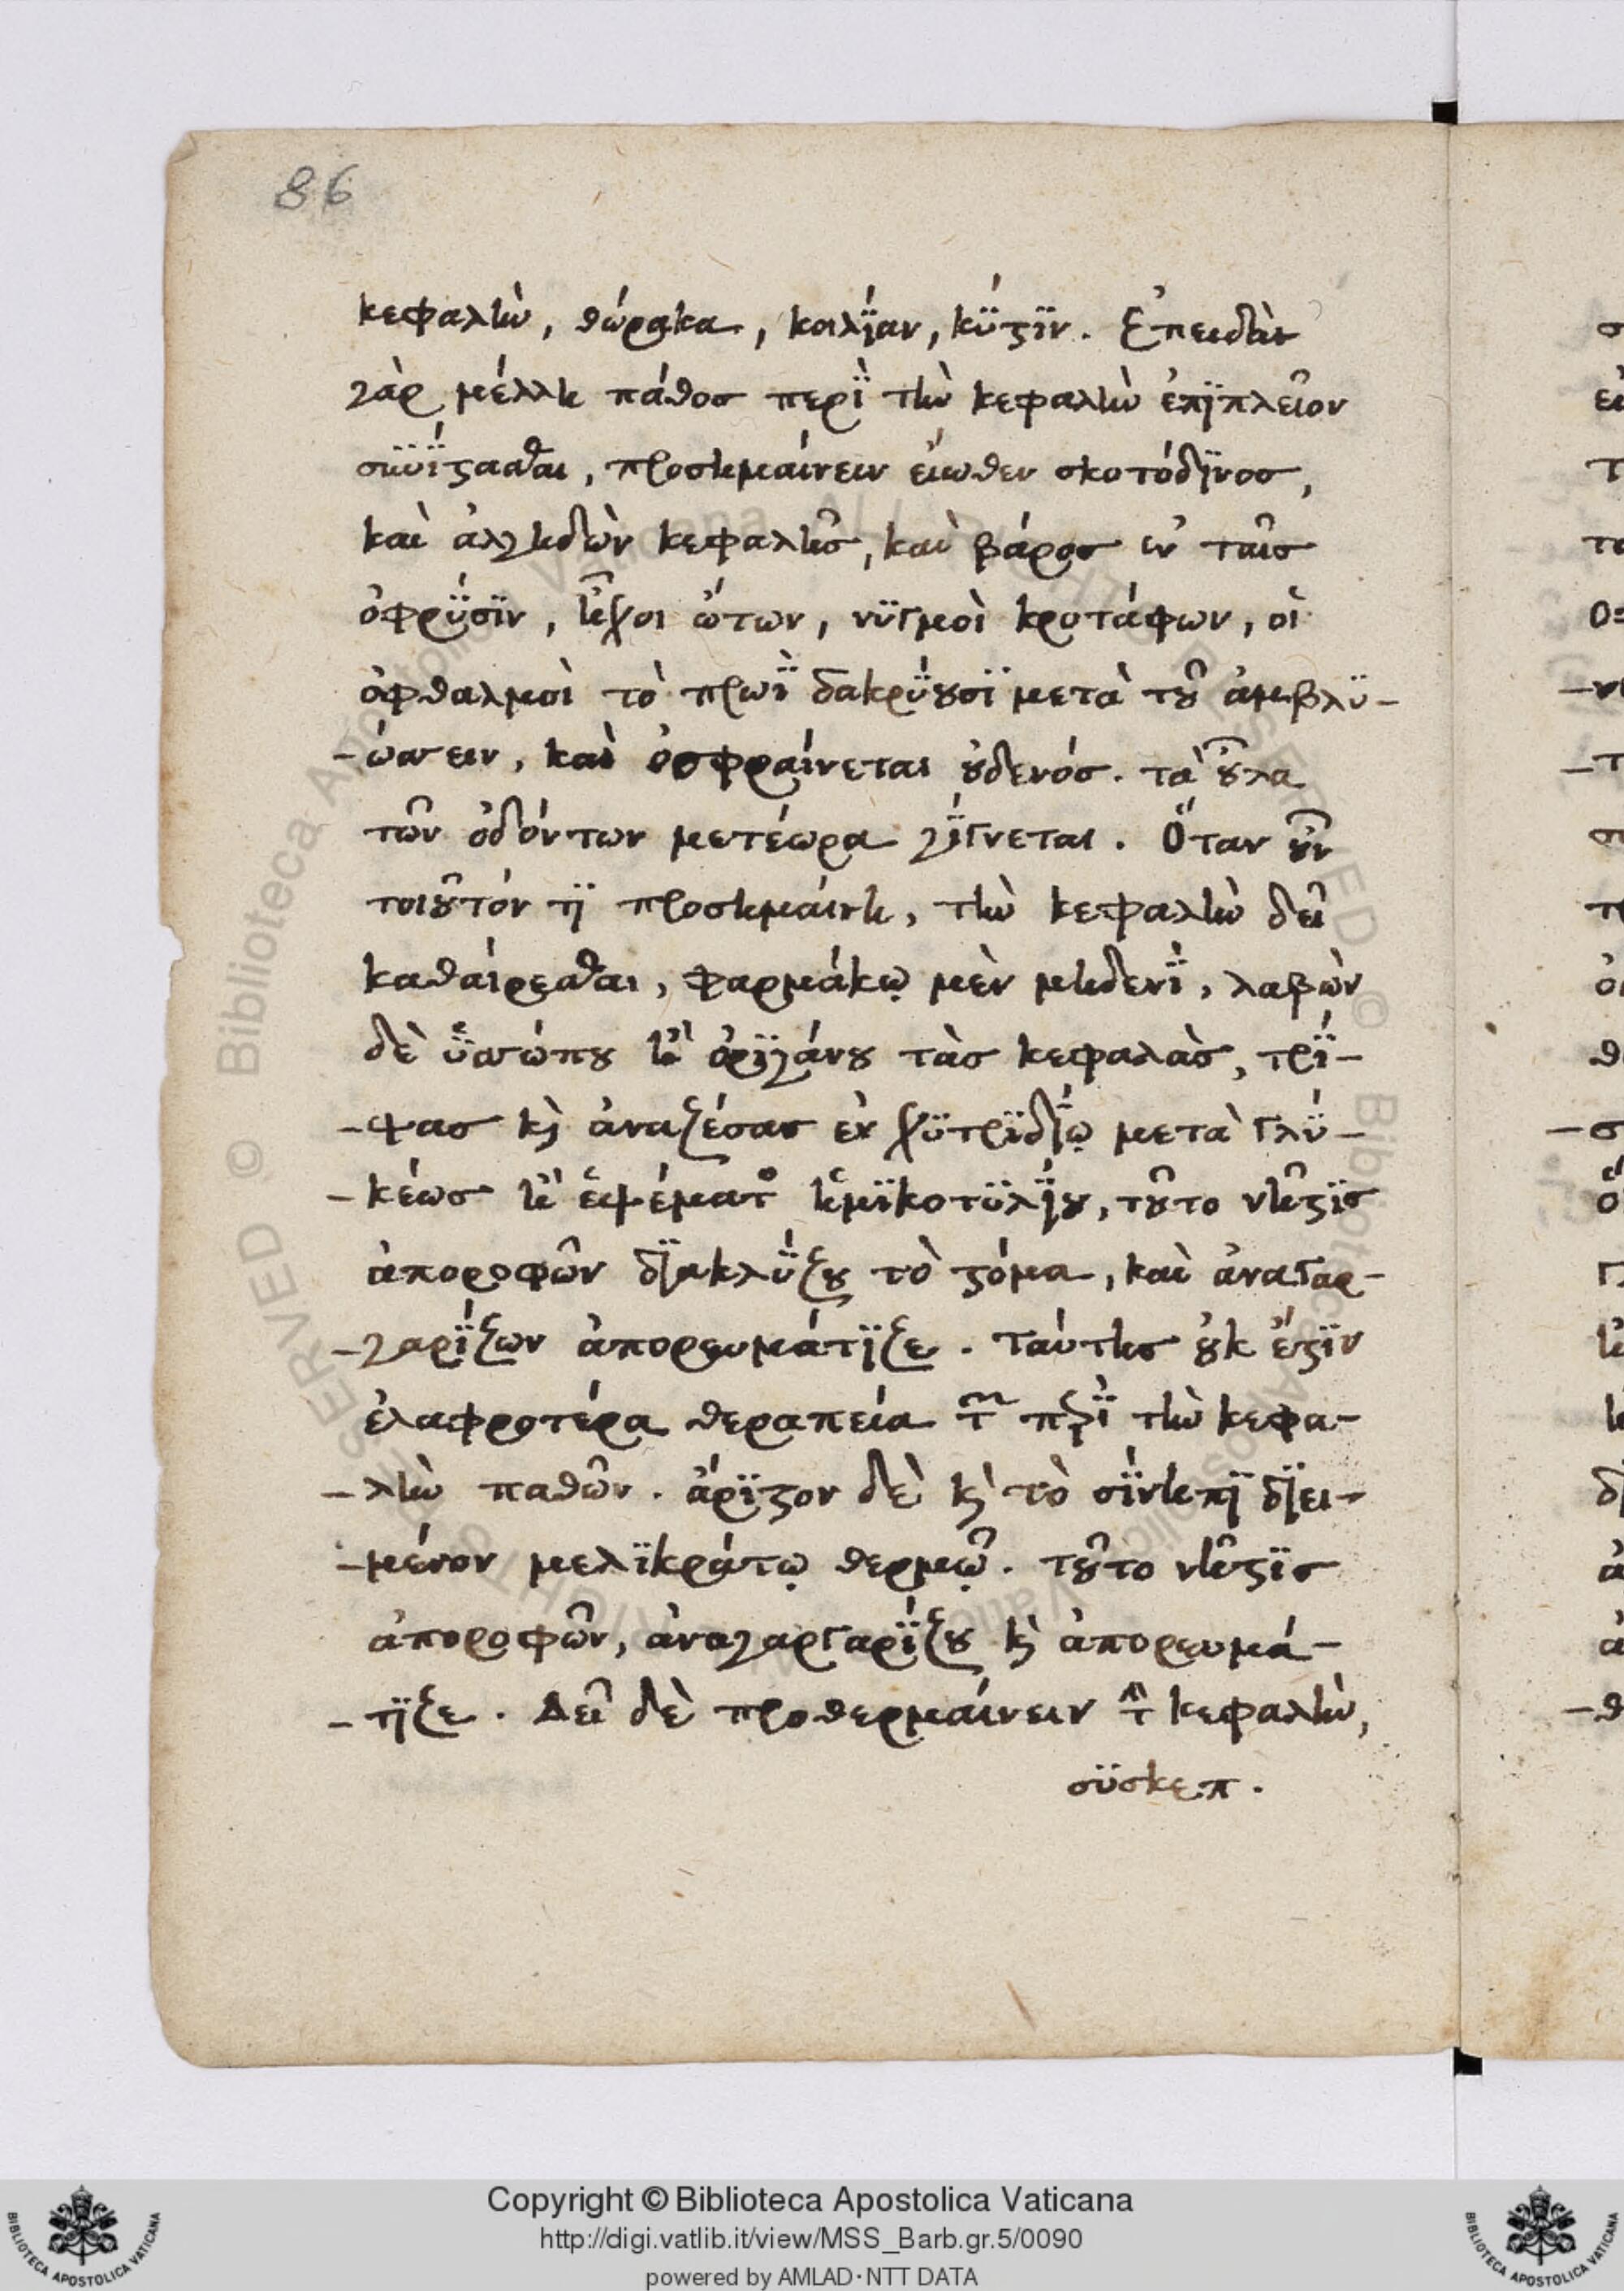 86
κεφαλὴν, θώρακα, κοιλΐαν, κΰστϊν. Ἐπειδὰν
γὰρ μέλλη πάθος περὶ τὴν κεφαλὴν ἐπϊπλεῖον
σϋνΐστασθαι, προσημαίνειν εἴωθεν σκοτόδϊνος,
καὶ ἀλγηδὼν κεφαλῆς, καὶ βάρος ἐν ταῖς
ὀφρΰσϊν, ἦχοι ὤτων, νϋγμοὶ κροτάφων, οἱ
ὀφθαλμοὶ τὸ πρωῒ δακρΰουσϊ μετὰ τοῦ ἀμβλϋ-
-ώσσειν, καὶ ὀσφραίνεται οὐδενός. τὰ οὖλα
τῶν ὀδόντων μετέωρα γΐγνεται. Ὅταν οὖν
τοιοῦτόν τϊ προσημαίνη, τὴν κεφαλὴν δεῖ
καθαίρεσθαι, φαρμάκῳ μὲν μηδενΐ, λαβὼν
δὲ ὑσσώπου ἢ ὀρϊγάνου τὰς κεφαλὰς, τρΐ-
-ψας κὶ ἀναζέσας ἐν χϋτρϊδΐῳ μετὰ γλϋ-
-κέως ἢ ἑψέματος ἡμϊκοτϋλΐου, τοῦτο νῆστϊς
ἀπορροφῶν δϊακλΰζου τὸ στόμα, καὶ ἀναγαρ-
-γαρΐζων ἀπορευμάτϊζε. ταύτης οὐκ ἔστϊν
ἐλαφροτέρα θεραπεία τῶν περὶ τὴν κεφα-
-λὴν παθῶν. ἄρϊστον δὲ κὶ τὸ σΐνηπϊ δϊει-
-μένον μελϊκράτῳ θερμῷ. τοῦτο νῆστϊς
ἀποροφῶν, ἀναγαργαρΐζου κὶ ἀπορευμά-
-τϊζε. Δεῖ δὲ προθερμαίνειν τὴν κεφαλὴν,
σϋσκεπ.
Copyright © Biblioteca Apostolica Vaticana
http://digi.vatlib.it/view/MSS_Barb.gr.5/0090
powered by AMLAD·NTT DATA